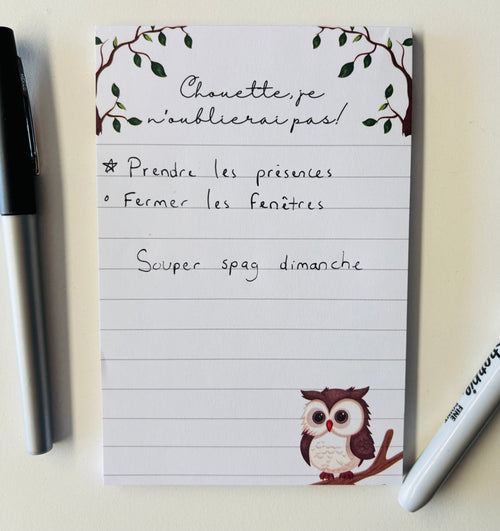 Chouette, je
n'oublierai pas!
☆ Prendre les présences
° Fermer les fenêtres
Souper spag dimanche
Sharpie
FINE